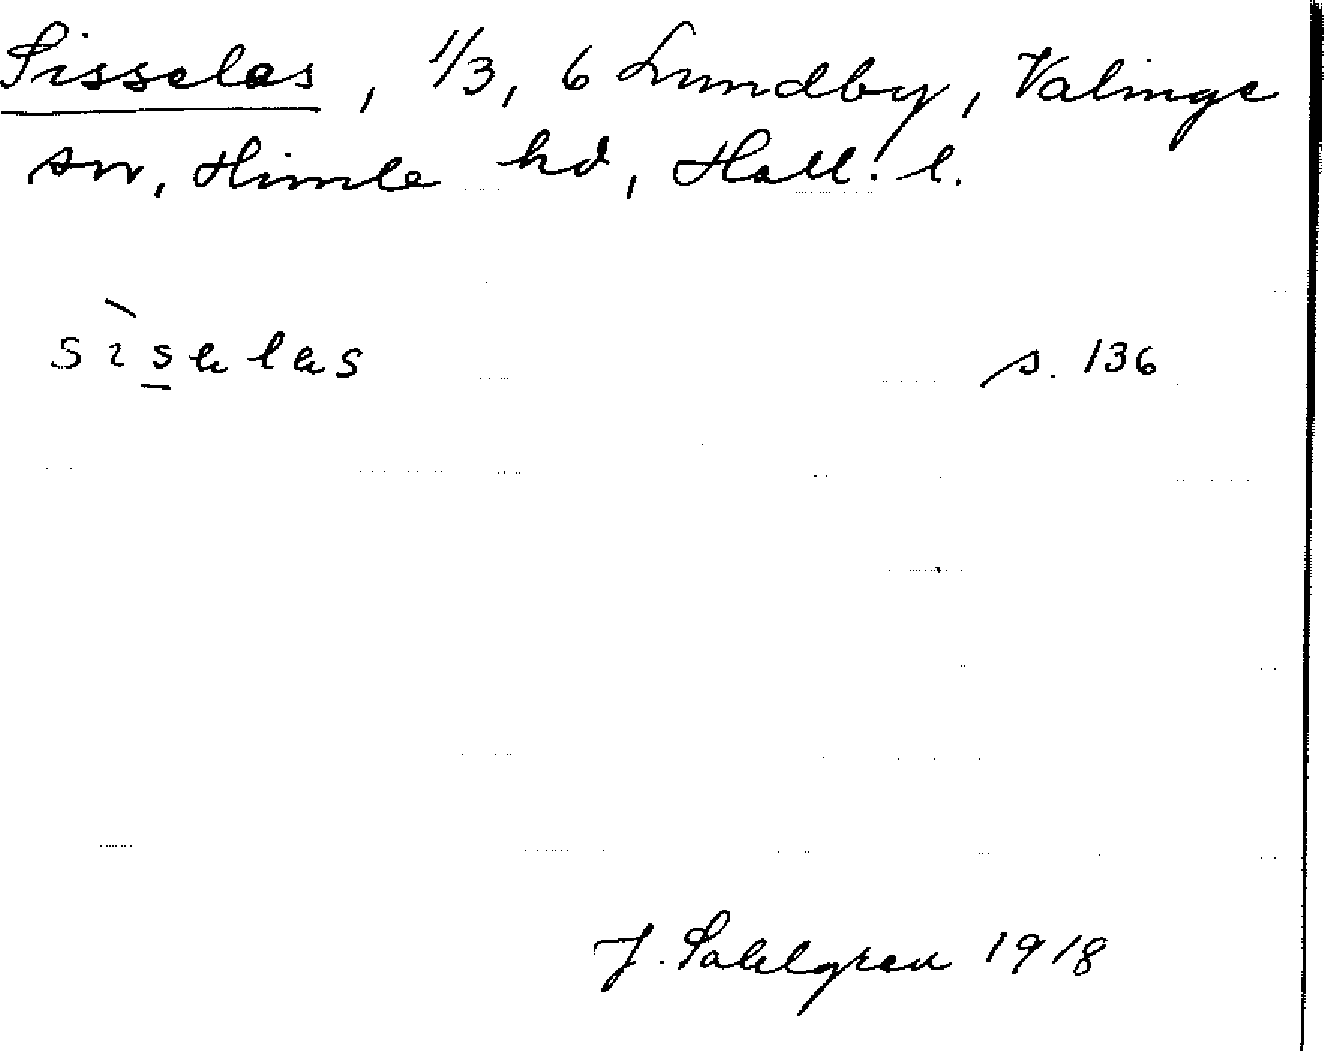 Sisselas, 1/3, 6 Lundby, Valinge
sn, Himle hd, Hall. l.
s. 136
J. Sahlgren 1918